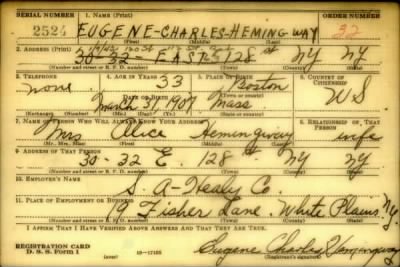 SERIAL NUMBER 1. NAME (Print) ORDER NUMBER
2524 EUGENE-CHARLES-HEMINGWAY 32
(First) (Middle) (Last)
2. ADDRESS (Print)
30-32 EAST 128 st NY NY
(Number and street or R. F. D. number) (Town) (County) (State)
3. TELEPHONE 4. AGE IN YEARS 5. PLACE OF BIRTH 6. COUNTRY OF CITIZENSHIP
none. 33 Boston
DATE OF BIRTH (Town or county)
March 31, 1907 Mass U S
(Exchange) (Number) (Mo.) (Day) (Yr.) (State or country)
7. NAME OF PERSON WHO WILL ALWAYS KNOW YOUR ADDRESS 8. RELATIONSHIP OF THAT PERSON
Mrs Alice Hemingway wife
(Mr., Mrs., Miss) (First) (Middle) (Last)
9. ADDRESS OF THAT PERSON
30-32 E. 128 st. NY NY
(Number and street or R. F. D. number) (Town) (County) (State)
10. EMPLOYER'S NAME
S. A-Healy Co.
11. PLACE OF EMPLOYMENT OR BUSINESS
19 Fisher Lane. White Plains NY.
(Number and street or R. F. D. number) (Town) (County) (State)
I AFFIRM THAT I HAVE VERIFIED ABOVE ANSWERS AND THAT THEY ARE TRUE.
REGISTRATION CARD
D. S. S. FORM 1 Eugene Charles Hemingway
(Registrant's signature)